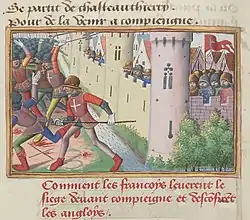 Se partit de chasteauthierry
Pour de la venir a compiengne
Comment les francoys leuerent le
siege deuant compiengne et desconfirēt
les angloys.